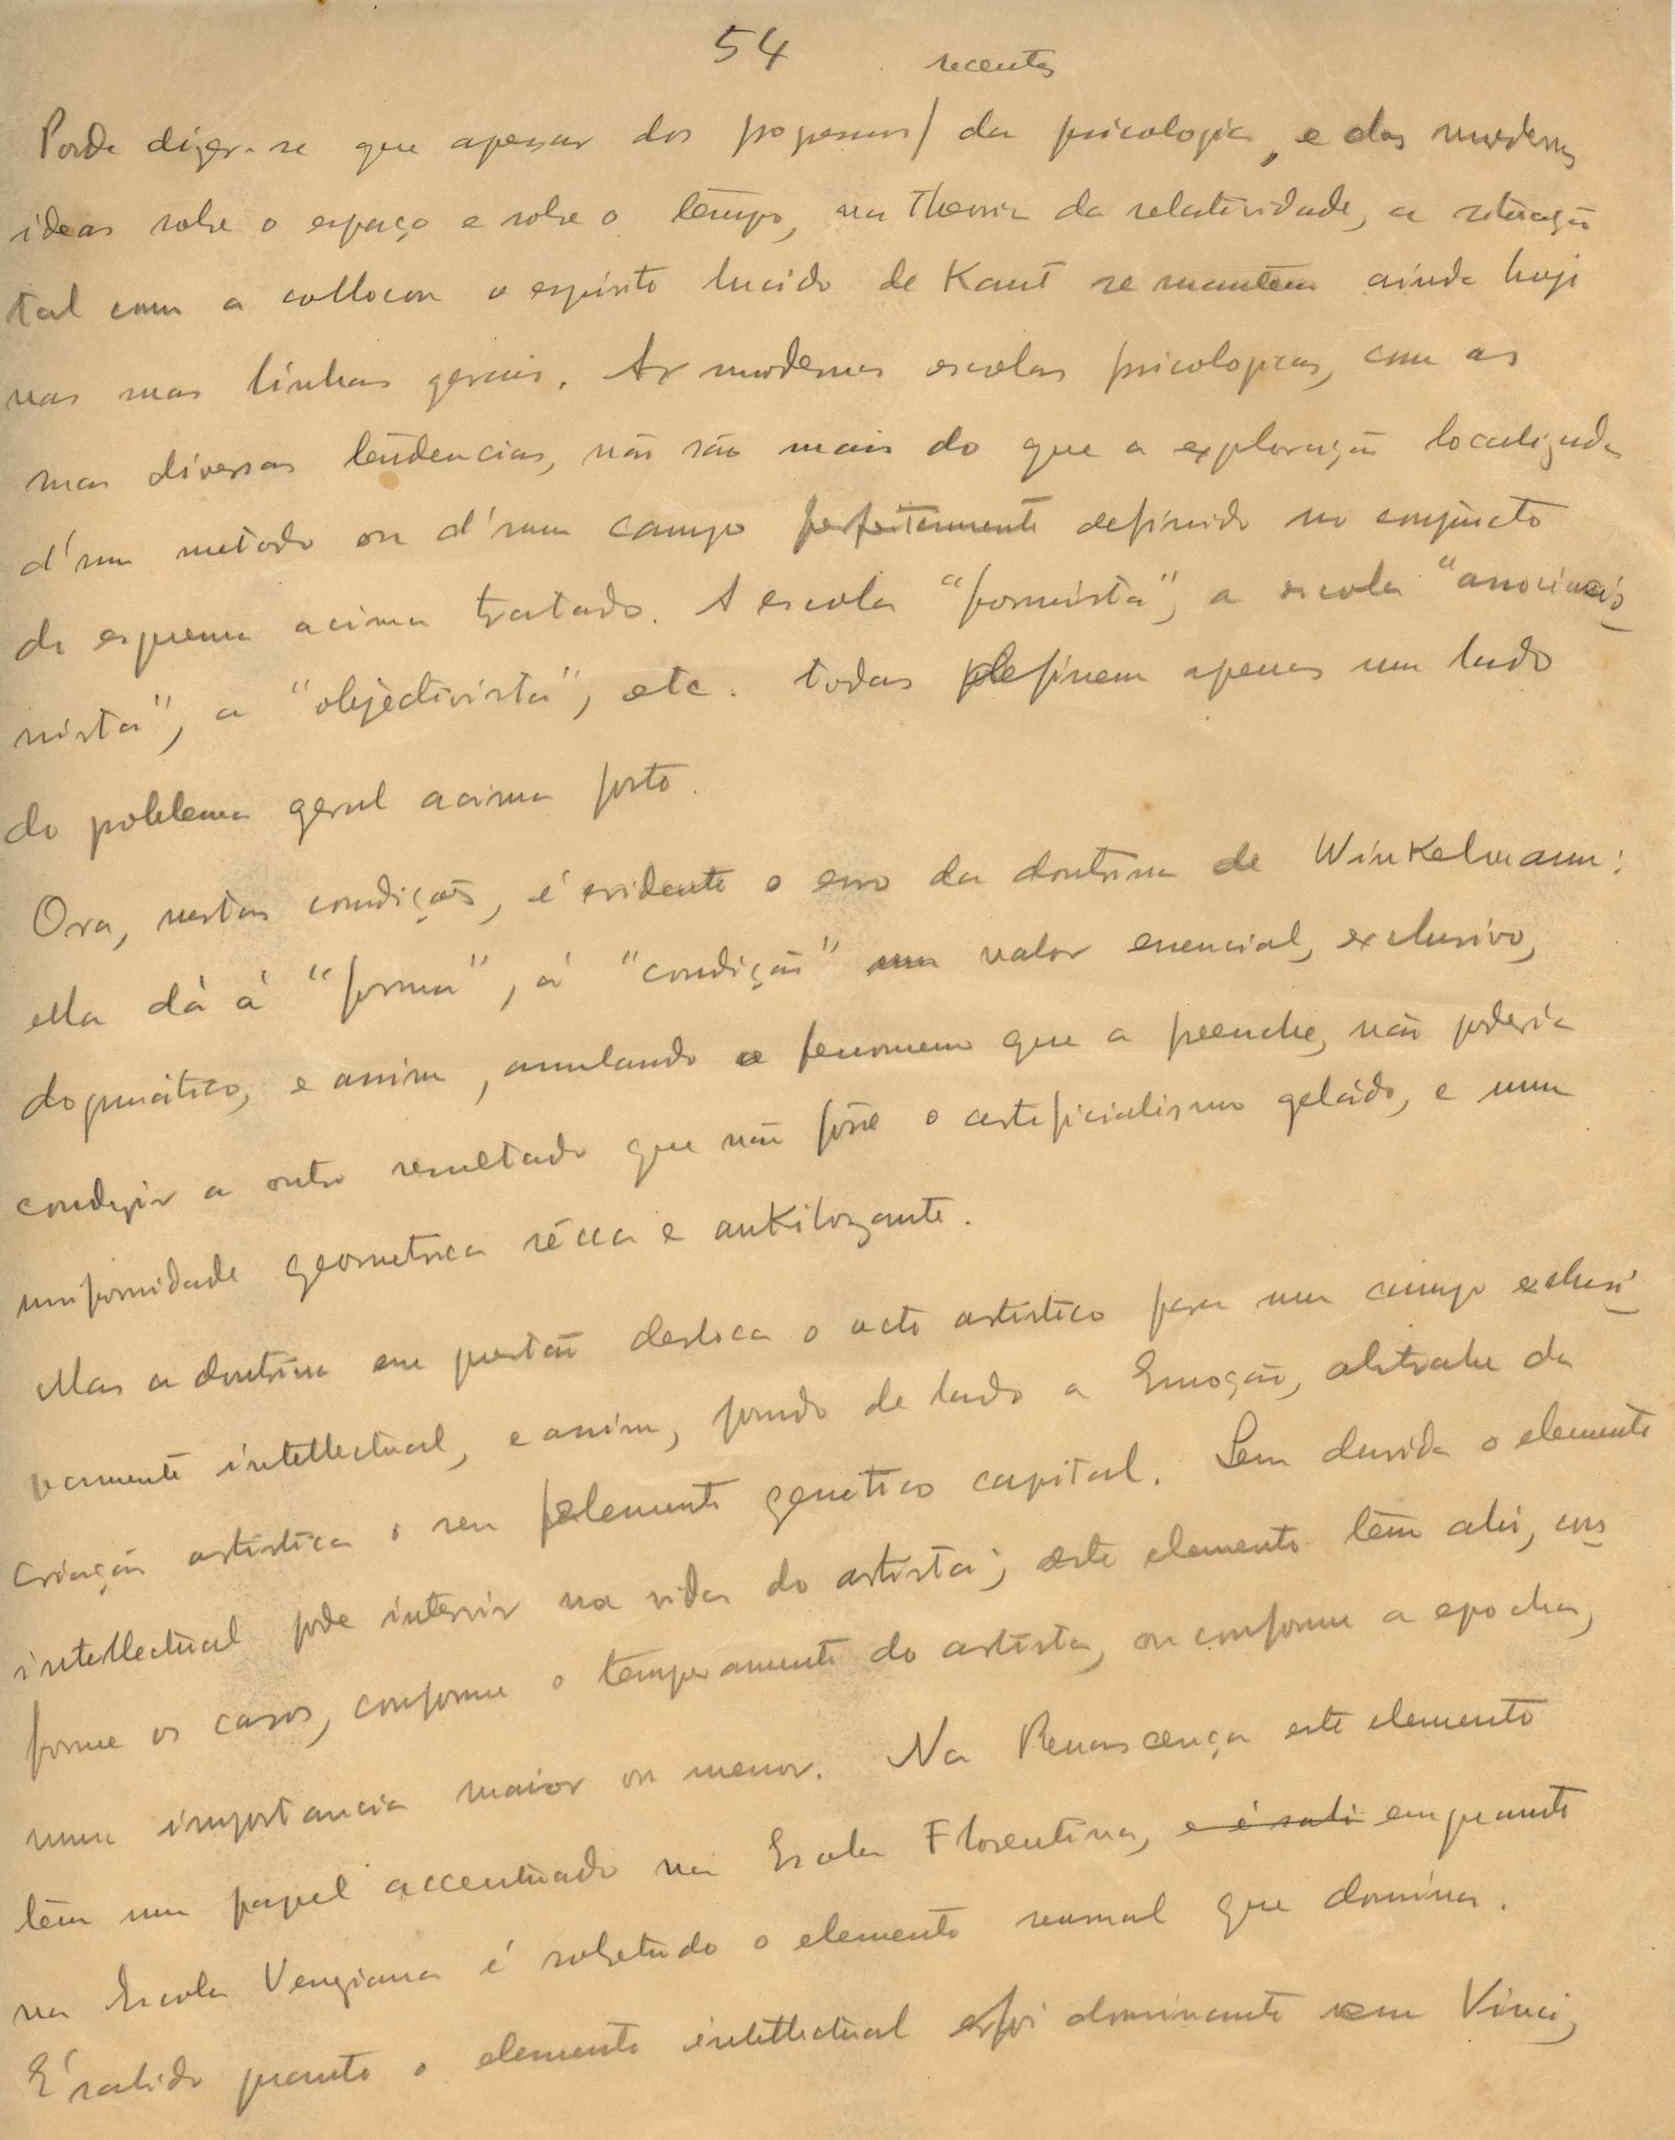 54
recentes
Pode dizer-se que apezar dos progressos / da psicologia, e das modernas
ideas sobre o espaço e sobre o tempo, na Theoria da relatividade, a situação
tal como a collocou o espirito lucido de Kant se mantem ainda hoje
nas suas linhas geraes. As modernas escolas psicologicas, com as
suas diversas tendencias, não são mais do que a exploração localizada
d'um metodo ou d'um campo perfeitamente definido no conjuncto
do esquema acima tratado. A escola "formista", a escola "associacio
nista", a "objectivista", etc. todas definem apenas um lado
do problema geral acima posto.
Ora, nestas condições, é evidente o erro da doutrina de Winkelmann:
ella dá á "forma", á "condição" um valor essencial, exclusivo,
dogmatico, e assim, annulando o fenomeno que a preenche, não poderia
conduzir a outro resultado que não fosse o arteficialismo geládo, e uma
uniformidade geometrica sécca e ankilozante.
Mas a doutrina em questão desloca o acto artistico para um campo exclusi
vamente intellectual, e assim, pondo de lado a Emoção, abstrahe da
criação artistica o seu elemento genetico capital. Sem duvida o elemento
intellectual pode intervir na vida do artista; este elemento têm ahi, con
forme os casos, conforme o temperamento do artista, ou conforme a epocha,
uma importancia maior ou menor. Na Renascença este elemento
têm um papel accentuado na Escola Florentina, e é sabi emquanto
na Escola Veneziana é sobretudo o elemento sensual que domina.
É sabido quanto o elemento intellectual foi dominante em Vinci,